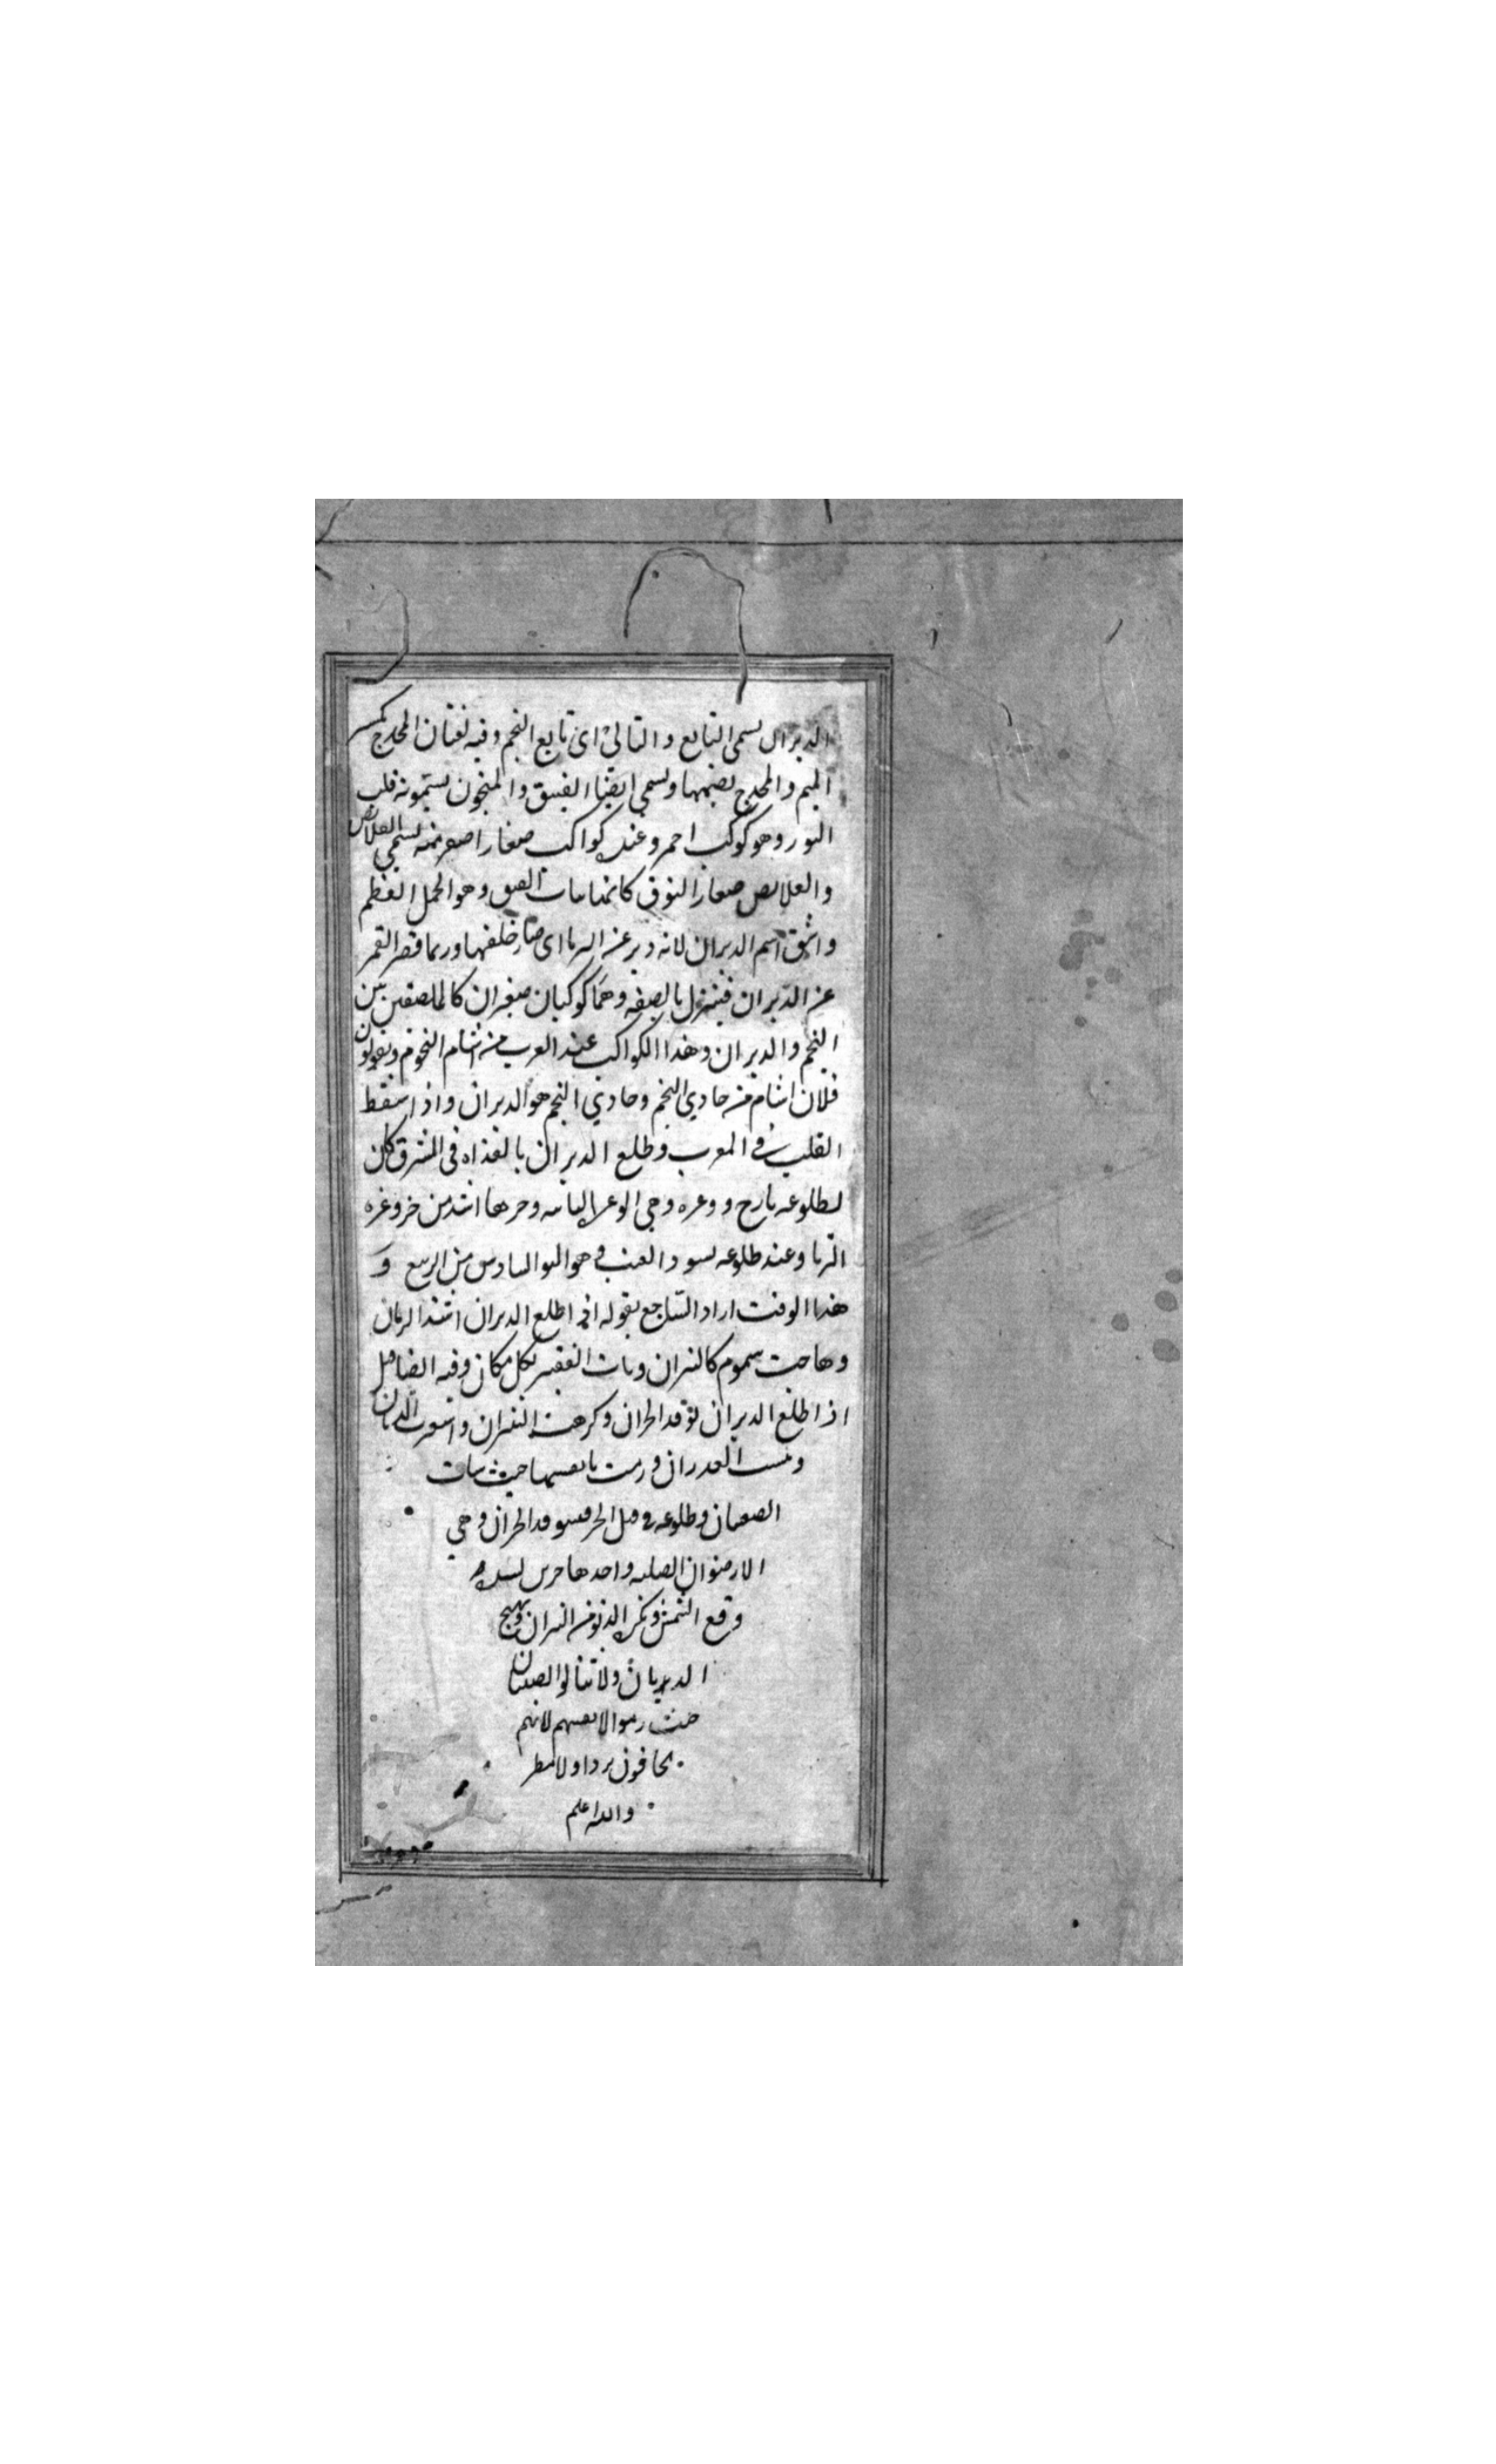 الدبران يسمى التابع والتالى اى تابع النجم وفيه لغتان المجدح بكسر
الميم والمجدح بضمها ويسمى ايضا الفنيق والمنجمون يسمونه قلب
الثور وهو كوكب احمر وعنده كواكب صغار اصغر منه يسمى القلائص
والقلائص صغار النوق كانها بنات الفنيق وهو الجمل العظيم
واشتق اسم الدبران لانه دبر عن الثريا اى صار خلفها وربما قصر القمر
عن الدبران فينزل بالضيقه وهما كوكبان صغيران كالملتصقين بين
النجم والدبران وهذا الكواكب عند العرب من اشام النجوم ويقولون
فلان اشام من حادي النجم وحادي النجم هو الدبران واذا سقط
القلب فى المغرب وطلع الدبران بالغداه فى المشرق كان
لطلوعه بارح ووغره وهى الوغره الثانيه وحرها اشد من حر وغره
الثريا وعند طلوعه يسود العنب وهو النوء السادس من الربيع و
هذا الوقت اراد الساجع بقوله اذا طلع الدبران اشتد الزمان
وهاجت سموم كالنيران وبات الفقير بكل مكان وفيه ايضا قيل
اذا طلع الدبران توقد الحزان وكرهت النيران واستعرت الذبان
ويبست الغدران ورمت بانفسها حيث شات
الصبيان وطلوعه فى قبل الحر فيتوقد الحزان وهى
الارضوان الصلبه واحدها حزيز لشده
وقع الشمس ويكره الدنو من النيران ويهيج
الذبان ولا تبالوا الصبيان
حيث رموا لانفسهم لانهم
يخافون بردا ولا مطر
والله اعلم